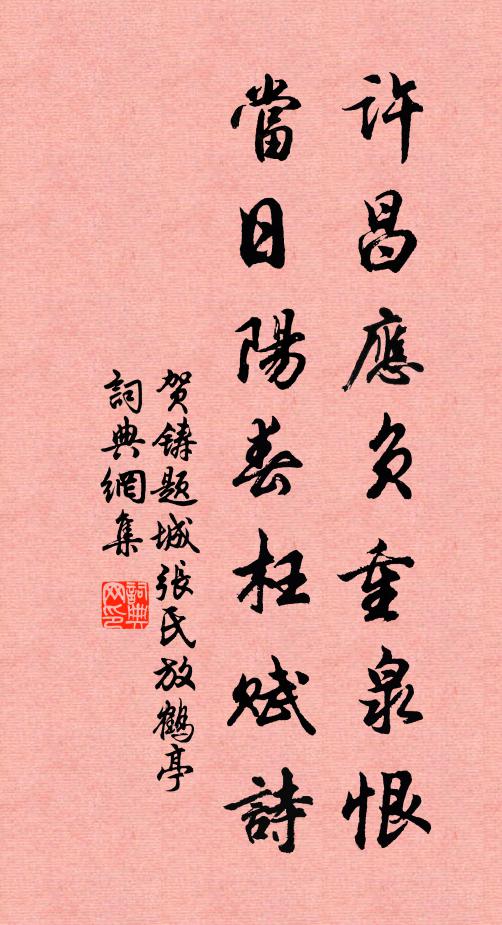 許昌應負重泉恨
當日陽春枉賦詩
贺鑄題城張氏放鶴亭
詞典網集
詞典
网印